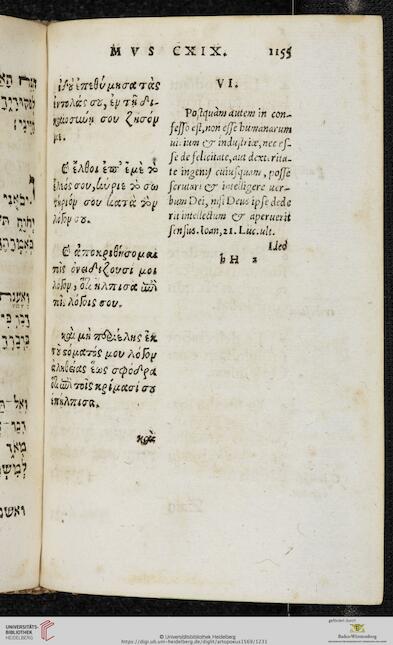 MVS CXIX.
1155
ἰδοὺ ἐπεθύμησα τὰς
ἐντολάς σου, ἐν τῇ δι-
καιοσύνῃ σου ζῆσόν
με.
ἔλθοι ἐπ' ἐμὲ τὸ
ἔλεός σου, κύριε τὸ σω
τήριόν σου κατὰ τὸν
λόγον σου.
ἀποκριθήσομαι
τοῖς ὀνειδίζουσί μοι
λόγον, ὅτι ἤλπισα ἐπὶ
τοῖς λόγοις σου.
καὶ μὴ περιέλῃς ἐκ
τοῦ στόματός μου λόγον
ἀληθείας ἕως σφόδρα
ὅτι ἐπὶ τοῖς κρίμασί σου
ἐπήλπισα.
καὶ
VI.
Postquàm autem in con-
fesso est, non esse humanarum
uirium & industriæ, nec es-
se de felicitate, aut dexterita-
te ingenij cuiusquam, posse
seruare & intelligere uer-
bum Dei, nisi Deus ipse dede
rit intellectum & aperuerit
sensus. Ioan, 21. Luc. ult.
Ideo
b H 2
UNIVERSITÄTS-
BIBLIOTHEK
HEIDELBERG
© Universitätsbibliothek Heidelberg
https://digi.ub.uni-heidelberg.de/diglit/artopoeus1569/1231
gefördert durch
Baden-Württemberg